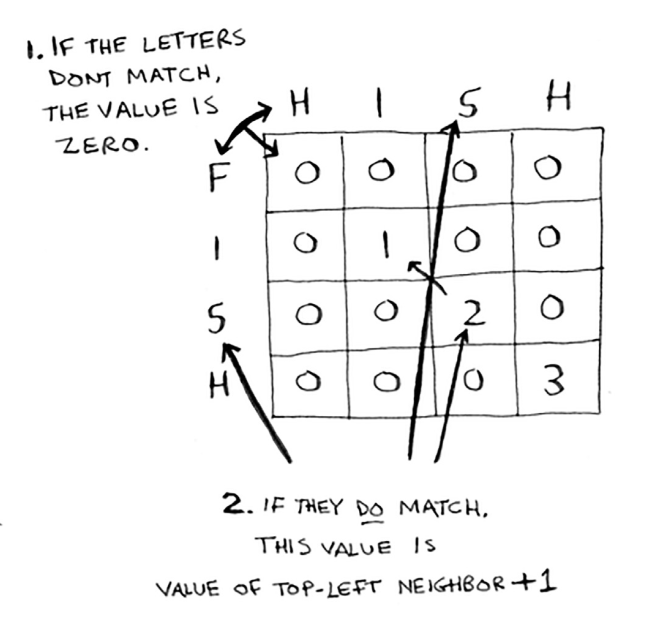 1. IF THE LETTERS
DONT MATCH,
THE VALUE IS
ZERO.
H I S H
F 0 0 0 0
I 0 1 0 0
S 0 0 2 0
H 0 0 0 3
2. IF THEY DO MATCH,
THIS VALUE IS
VALUE OF TOP-LEFT NEIGHBOR +1